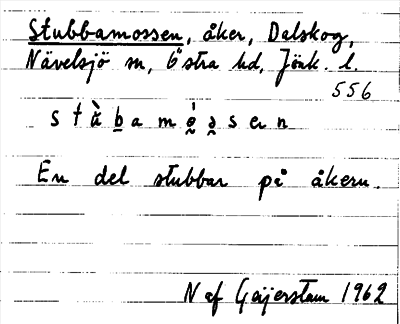 Stubbamossen, åker, Dalskog,
Nävelsjö sn, Östra hd, Jönk. l.
556
En del stubbar på åkern.
N af Geijerstam 1962